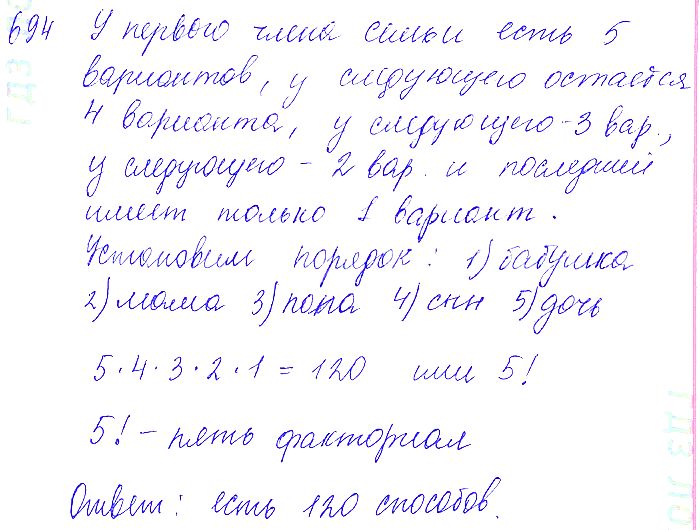 694 У первого члена семьи есть 5
вариантов, у следующего остаётся
4 варианта, у следующего - 3 вар.,
у следующего - 2 вар. и последний
имеет только 1 вариант.
Установим порядок: 1) бабушка
2) мама 3) папа 4) сын 5) дочь
5 · 4 · 3 · 2 · 1 = 120 или 5!
5! - пять факториал
Ответ: есть 120 способов.